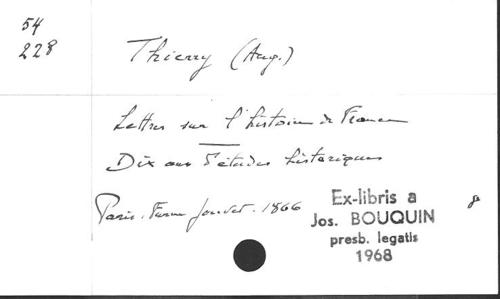 54
228
Thierry (Aug.)
Lettres sur l'histoire de France
Dix ans d'études historiques
Paris. Furne Jouvet. 1866
8
Ex-libris a
Jos. BOUQUIN
presb. legatis
1968